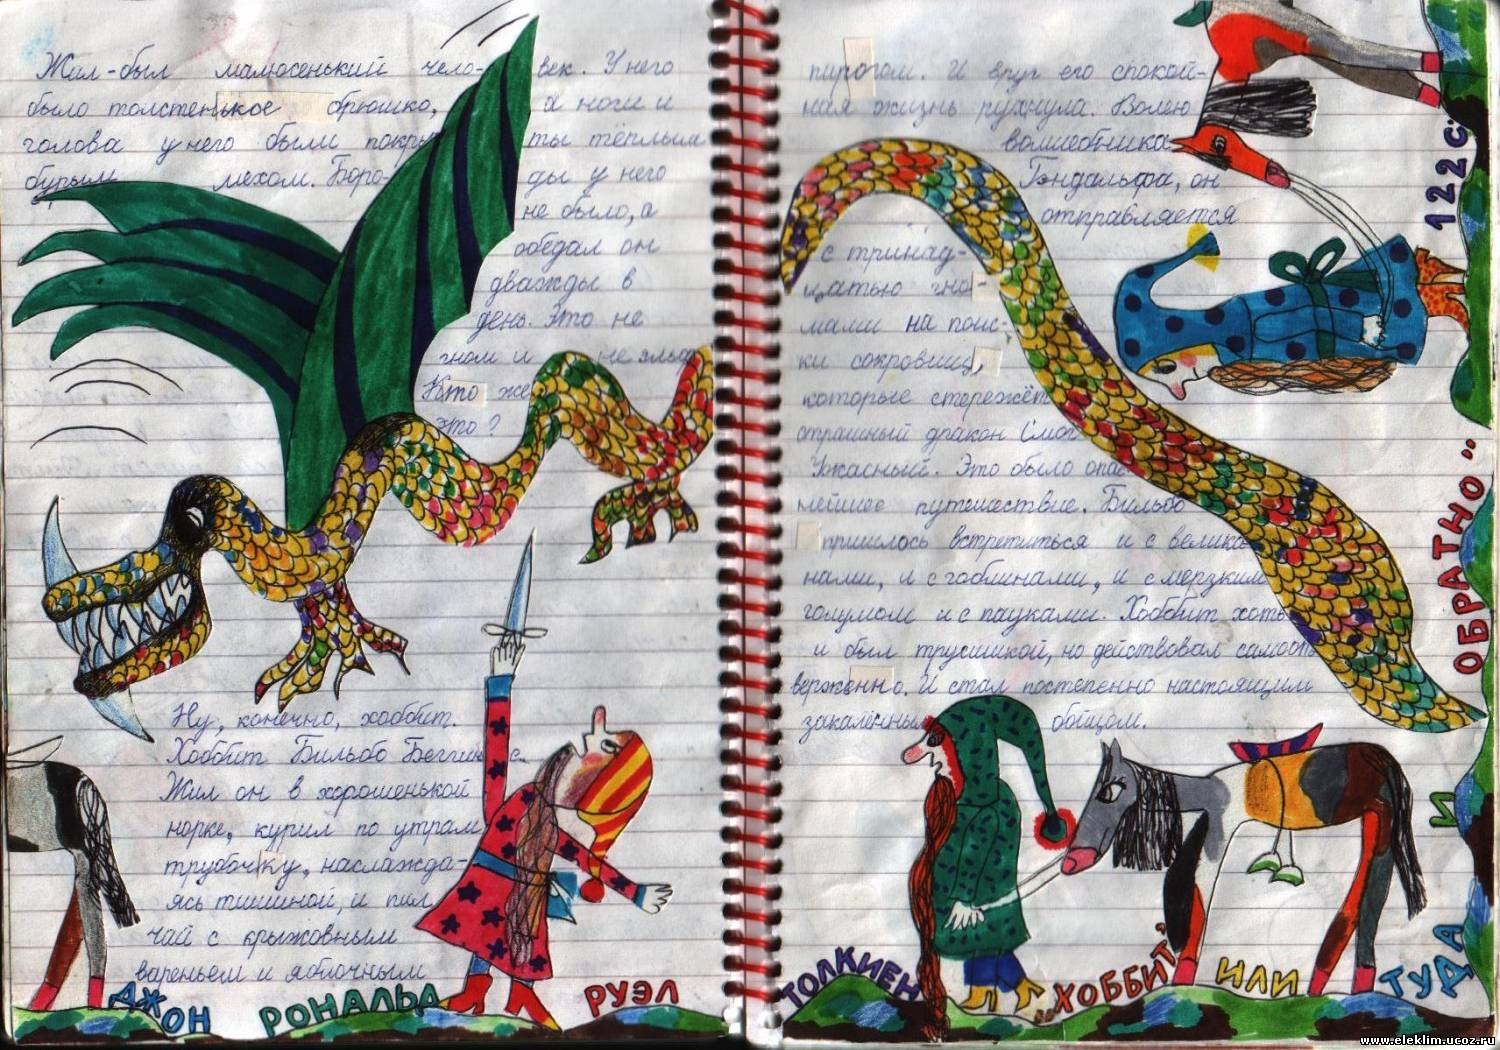 Жил-был малюсенький чело-век. У него
было толстенькое брюшко, а ноги и
голова у него были покрыты тёплым
бурым мехом. Боро-ды у него
не было, а
обедал он
дважды в
день. Это не
гном и не эльф
Кто же
это?
Ну, конечно, хоббит.
Хоббит Бильбо Беггинс.
Жил он в хорошенькой
норке, курил по утрам
трубочку, наслажда-
ясь тишиной, и пил
чай с крыжовным
вареньем и яблочным
пирогом. И вдруг его спокой-
ная жизнь рухнула. Волею
волшебника
Гэндальфа, он
отправляется
с тринад-
цатью гно-
мами на поис-
ки сокровищ,
которые стережёт
страшный дракон Смог
Ужасный. Это было опас
нейшее путешествие. Бильбо
пришлось встретиться и с велика
нами, и с гоблинами, и с мерзким
голумом и с пауками. Хоббит хоть
и был трусишкой, но действовал самоот
верженно. И стал постепенно настоящим
закалённым бойцом.
ДЖОН РОНАЛЬД РУЭЛ
ТОЛКИЕН „ХОББИТ, ИЛИ ТУДА И ОБРАТНО" 122с.
www.eleklim.ucoz.ru